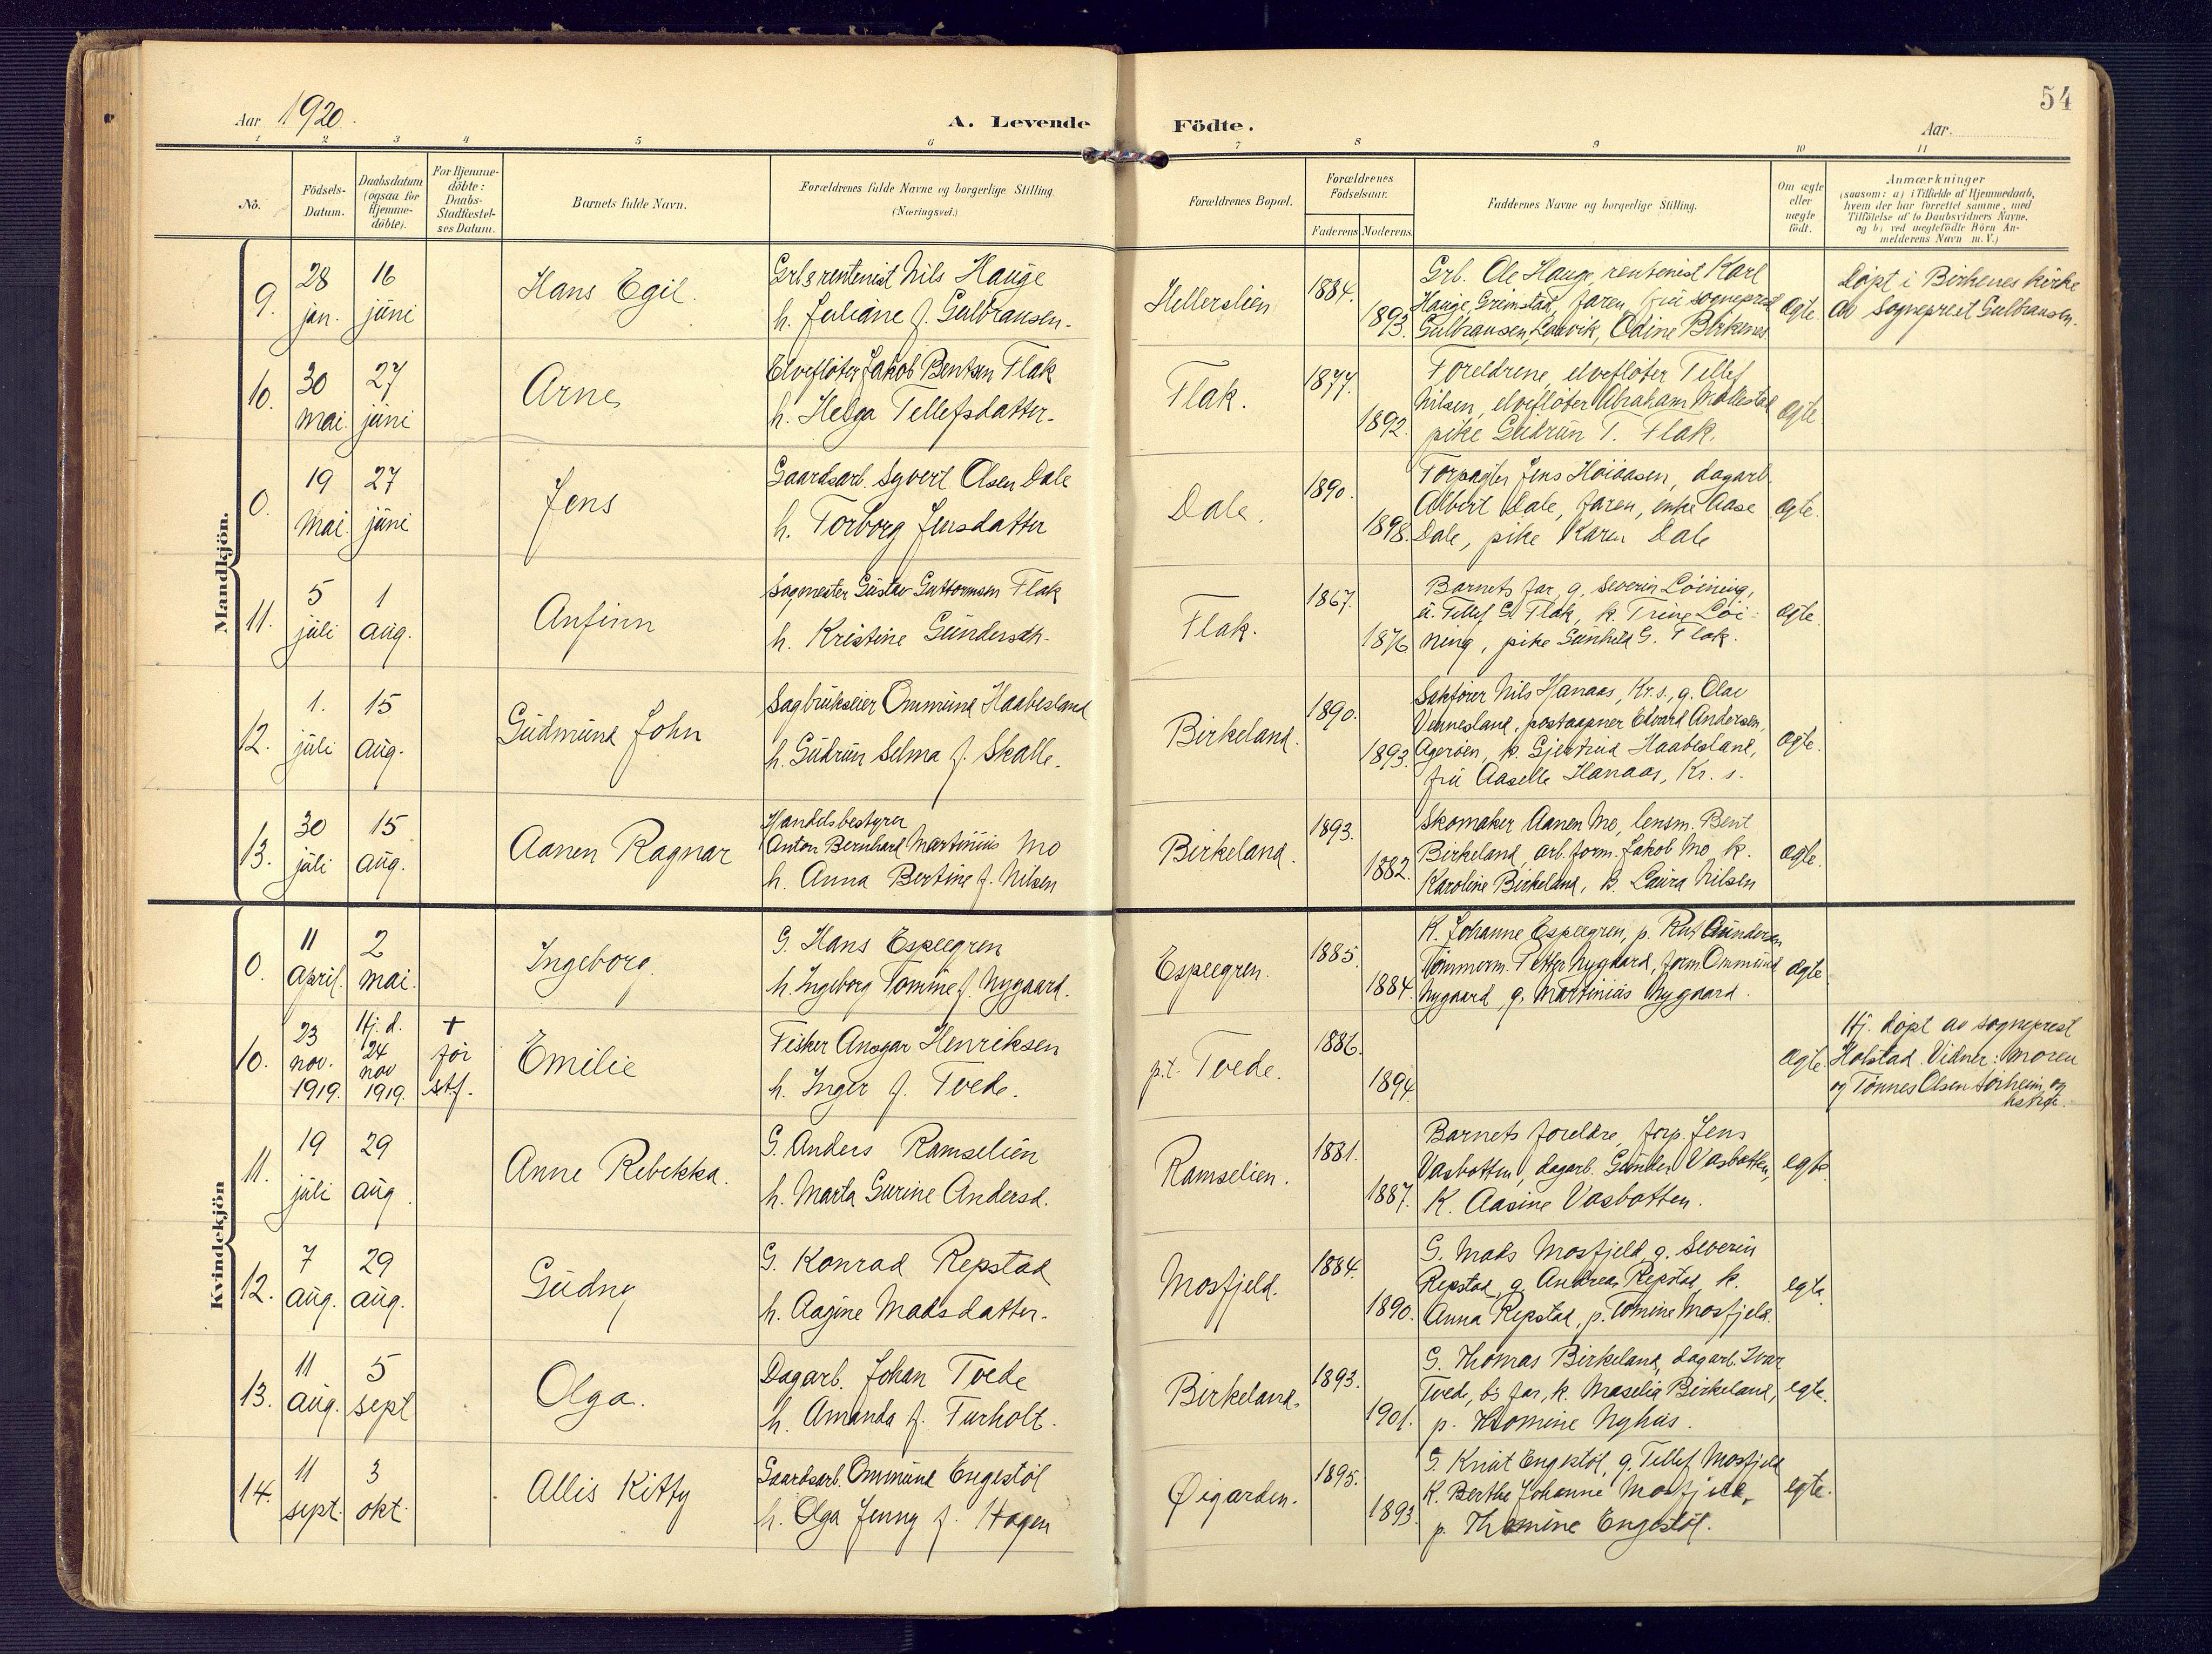 54
Aar 1920.
A. Levende Födte.
Aar.
1 2 3 4 5 6 7 8 9 10 11
No.
Födsels-
Datum.
Daabsdatum
(ogsaa for
Hjemme-
döbte).
For Hjemme-
döbte:
Daabs-
Stadfæstel-
ses Datum.
Barnets fulde Navn.
Forældrenes fulde Navne og borgerlige Stilling.
(Næringsvei.)
Forældrenes Bopæl.
Forældrenes
Födselsaar.
Faderens Moderens
Faddernes Navne og borgerlige Stilling.
Om ægte
eller
uægte
födt.
Anmærkninger
(saasom: a) i Tilfælde af Hjemmedaab,
hvem der har forrettet samme, med
Tilföielse af to Daabsvidners Navne,
og b) ved uægtefödte Börn An-
melderens Navn m. V.)
Mandkjön.
9.
28
jan.
16
juni
Hans Egil.
Grb. & rentenist Nils Hauge
h. Juliane f. Gulbransen.
Hellerslien
1884.
1893.
Grb. Ole Hauge, rentenist Karl
Hauge, Grimstad, faren, fru sogneprest
Gulbransen, Larvik, Odine Birkenes.
egte.
Döpt i Birkenes kirke
av sogneprest Gulbransen.
10.
30
mai
27
juni
Arne
Elvefløter Jakob Bentsen Flak
h. Helga Tellefsdatter.
Flak.
1877.
1892.
Foreldrene, elvefløter Tellef
Nilsen, elvefløter Abraham Mollestad
pike Gudrun T. Flak.
egte.
0.
19
mai
27
juni
Jens
Gaardsarb. Syvert Olsen Dale
h. Torborg Jensdatter
Dale.
1890.
1898.
Forpagter Jens Høiaasen, dagarb.
Albert Dale, faren, enke Aase
Dale, pike Karen Dale
egte.
11.
5
juli
1
aug.
Anfinn
Sagmester Gustav Guttormsen Flak
h. Kristine Gundersdh.
Flak.
1867.
1876
Barnets far, g. Severin Løining,
u. Tellef G. Flak, k. Trine Løi-
ning, pike Gunhild G. Flak.
egte.
12.
1.
juli
15
aug.
Gudmund John
Sagbrukseier Ommund Haabesland
h. Gudrun Selma f. Skalle.
Birkeland.
1890.
1893.
Sakfører Nils Hanaas, Kr.s., g. Olav
Vennesland, postaapner Edvard Andersen,
Agerøen, k. Gjertrud Haabesland,
fru Aaselle Hanaas, Kr. s.
egte.
13.
30
juli
15
aug.
Aanen Ragnar
Handelsbestyrer
Anton Bernhard Martinius Mo
h. Anna Bertine f. Nilsen
Birkeland.
1893.
1882.
Skomaker Aanen Mo, lensm. Bent
Birkeland, arb.form. Jakob Mo, k.
Karoline Birkeland, k. Laura Nilsen
egte.
Kvindekjön
0.
11
April.
2
mai.
Ingeborg.
G. Hans Espeegren
h. Ingeborg Tomine f. Nygaard.
Espeegren.
1885.
1884.
K. Johanne Espeegren, p. Rut Gundersen
Tömmerm. Petter Nygaard, form. Ommund
Nygaard, g. Martinius Nygaard.
egte
10.
23
nov.
1919.
Hj. d.
24
nov
1919.
+
før
stf.
Emilie
Fisker Ansgar Henriksen
h. Inger f. Tvede.
p.t. Tvede.
1886.
1894.
egte.
Hj. døpt av sogneprest
Holstad. Vidner: moren
og Tønnes Olsen Sørheim, og
11.
19
juli
29
aug.
Anne Rebekka.
G. Anders Ramselien
h. Marta Gurine Andersd.
Ramselien.
1881.
1887.
Barnets foreldre, forp. Jens
Vasbotten, dagarb. Gunder Vasbotten,
K. Aasine Vasbotten.
egte
12.
7
aug.
29
aug.
Gudny
G. Konrad Repstad
h. Aagine Madsdatter.
Mosfjeld.
1884.
1890.
G. Mads Mosfjeld, g. Severin
Repstad, g. Andreas Repstad, k.
Anna Repstad, p. Tomine Mosfjeld.
egte.
13.
11
aug.
5
sept
Olga.
Dagarb. Johan Tvede
h. Amanda f. Furholt.
Birkeland.
1893.
1901.
G. Thomas Birkeland, dagarb. Ivar
Tvede, bs far, k. Maselia Birkeland,
p. Thomine Nyhus.
egte.
14.
11
sept.
3
okt.
Allis Kitty
Gaardsarb. Ommund Engestøl
h. Olga Jenny f. Hagen
Øigarden.
1895.
1893.
G. Knut Engestøl, g. Tellef Mosfjeld
K. Berthe Johanne Mosfjeld,
p. Thomine Engestøl.
egte.